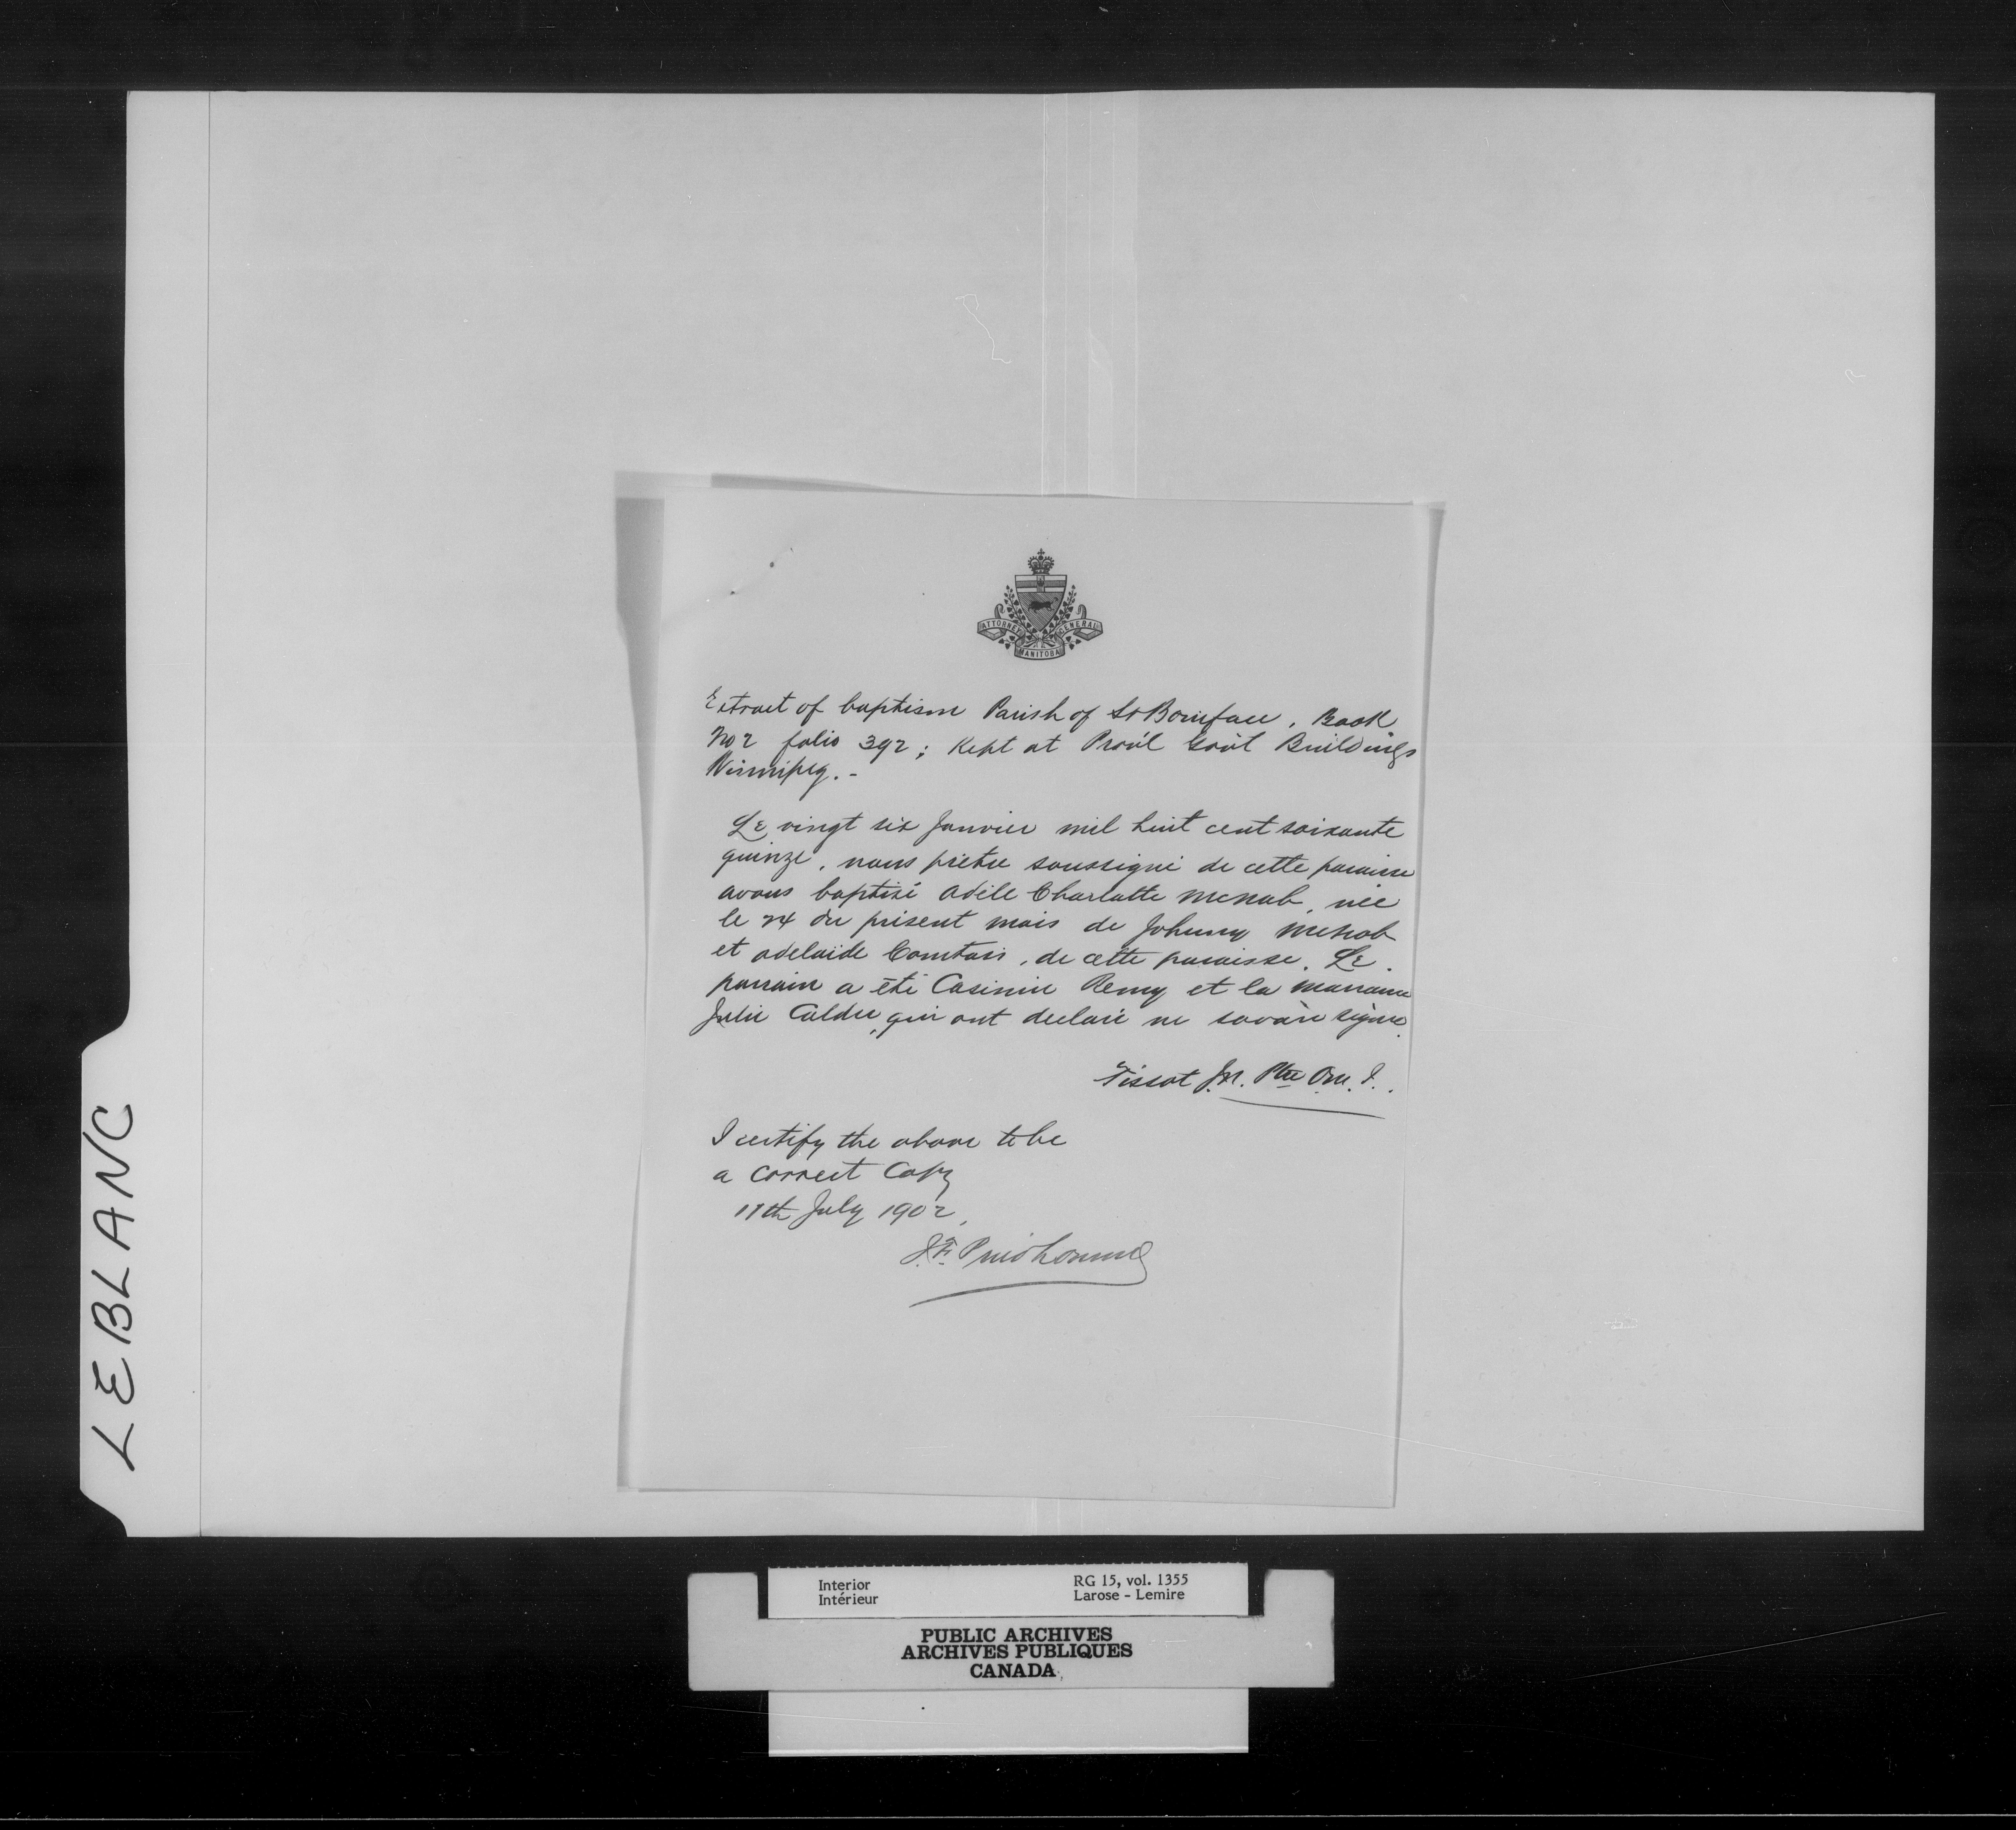 ATTORNEY GENERAL
MANITOBA
Extract of baptism Parish of St Boniface, Book
No 2 folio 392; Kept at Prov'l Gov't Buildings
Winnipeg. -
Le vingt six Janvier mil huit cent soixante
quinze, nous prêtre soussigné de cette paroisse
avons baptisé Adèle Charlotte McNab, née
le 24 du présent mois de Johnny McNab
et Adelaide Comtois, de cette paroisse. Le
parrain a été Casimir Remy et la marraine
Julie Calder, qui ont declaré ne savoir signer.
Tissot J.M. Ptre O.M.I.
I certify the above to be
a correct Copy
11th July 1902,
J.F. Prudhomme
LEBLANC
Interior
Intérieur
RG 15, vol. 1355
Larose - Lemire
PUBLIC ARCHIVES
ARCHIVES PUBLIQUES
CANADA